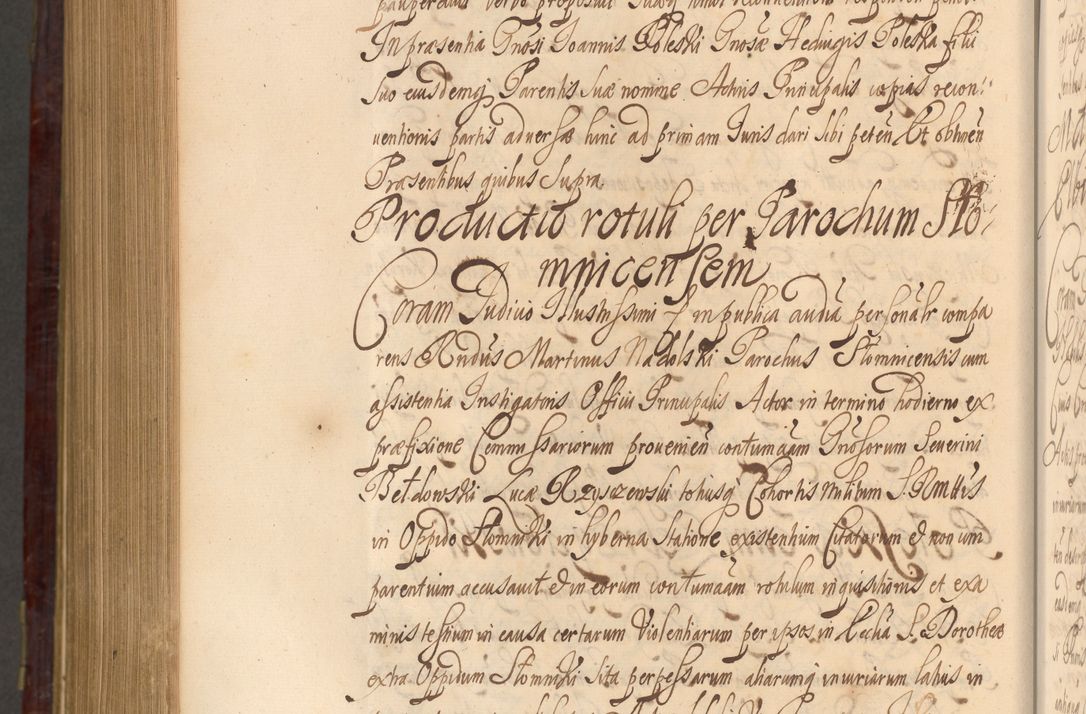 In præsentia Gnosi Joannis Poleski Gnosæ Hedvigis Poleska filii
suo eiusdemq Parentis suæ nomine Actricis Principalis copias recon-
ventionis partis adversæ hinc ad primam Juris dari sibi peteñ Et obtineñ
Præsentibus quibus supra
Productio rotuli per Parochum Sło-
mnicensem
Coram Judicio Illustrissimi &c in publica audiã personalr compa
rens Rndus Martinus Nadolski Parochus Słomnicensis cum
assistentia Instigatoris Officii Principalis Actor in termino hodierno ex
præfixione Commissariorum provenieñ contumãam Gnosorum Severini
Bełdowski Lucæ Rzyszewski totiusq Cohortis militum S. R. Mttis
in Oppido Słomniki in hyberna statione existentium Citatorum et non com
parentium accusavit et in eorum contumãam rotulum inquisitionis et exa
minis testium in causa certarum Violentiarum per ipsos in Ecclia S. Dorotheæ
extra Oppidum Słomniki sita perpessarum aliarumq iniuriarum latius in